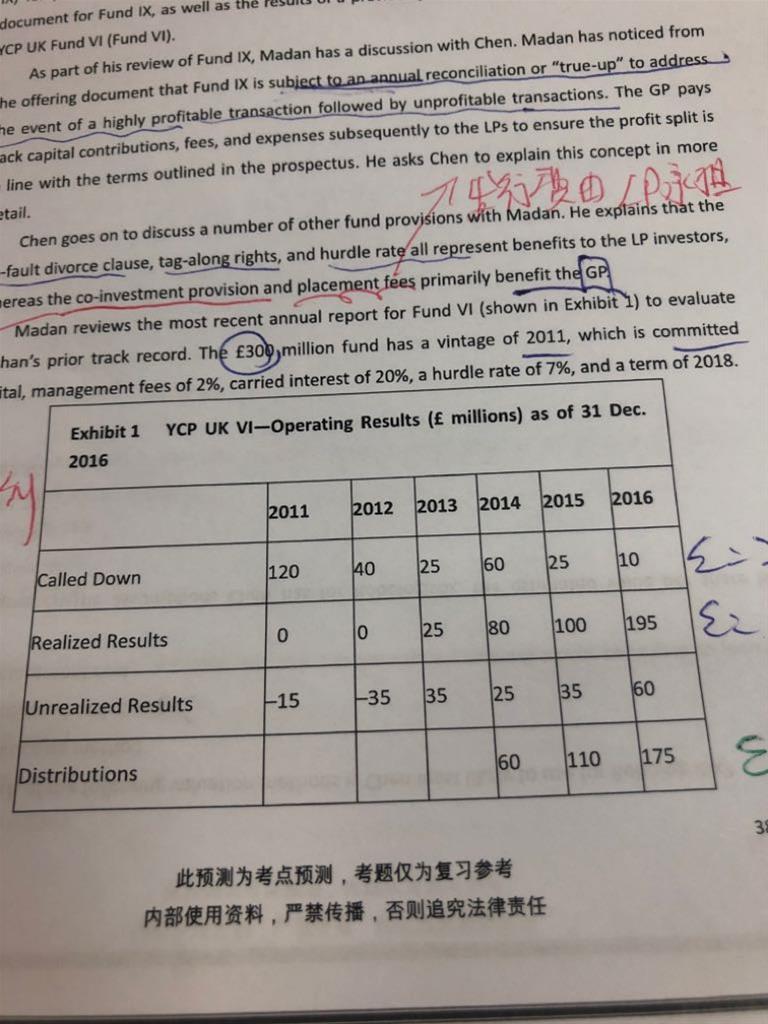 document for Fund IX, as well as the results of a
YCP UK Fund VI (Fund VI).
As part of his review of Fund IX, Madan has a discussion with Chen. Madan has noticed from
he offering document that Fund IX is subject to an annual reconciliation or “true-up” to address
he event of a highly profitable transaction followed by unprofitable transactions. The GP pays
ack capital contributions, fees, and expenses subsequently to the LPs to ensure the profit split is
line with the terms outlined in the prospectus. He asks Chen to explain this concept in more
etail.
发行费由LP承担
Chen goes on to discuss a number of other fund provisions with Madan. He explains that the
-fault divorce clause, tag-along rights, and hurdle rate all represent benefits to the LP investors,
hereas the co-investment provision and placement fees primarily benefit the GP.
Madan reviews the most recent annual report for Fund VI (shown in Exhibit 1) to evaluate
han’s prior track record. The £300 million fund has a vintage of 2011, which is committed
ital, management fees of 2%, carried interest of 20%, a hurdle rate of 7%, and a term of 2018.
Exhibit 1 YCP UK VI—Operating Results (£ millions) as of 31 Dec.
2016
2011 2012 2013 2014 2015 2016
Called Down 120 40 25 60 25 10 Σ=
Realized Results 0 0 25 80 100 195 Σ=
Unrealized Results –15 –35 35 25 35 60
Distributions 60 110 175 Σ
38
此预测为考点预测，考题仅为复习参考
内部使用资料，严禁传播，否则追究法律责任